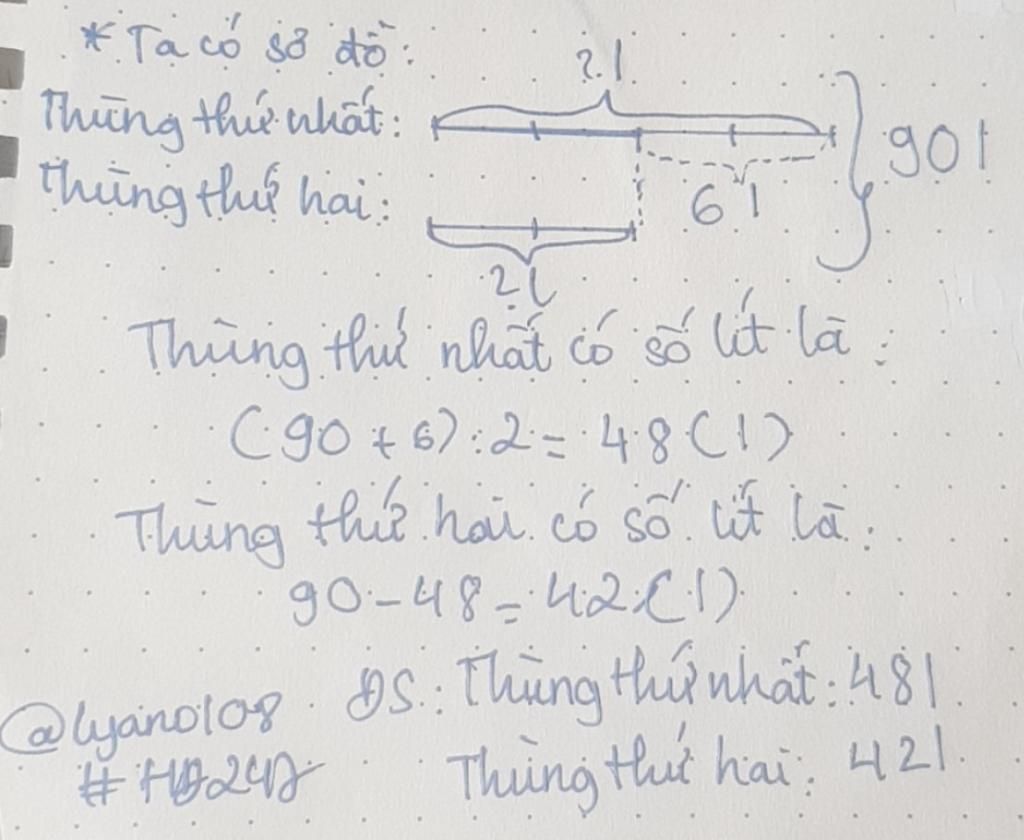 * Ta có sơ đồ:
? l
Thùng thứ nhất:
90 l
6 l
Thùng thứ hai:
? l
Thùng thứ nhất có số lít là:
(90 + 6) : 2 = 48 (l)
Thùng thứ hai có số lít là:
90 - 48 = 42 (l)
ĐS: Thùng thứ nhất: 48 l
@lyano108
Thùng thứ hai: 42 l